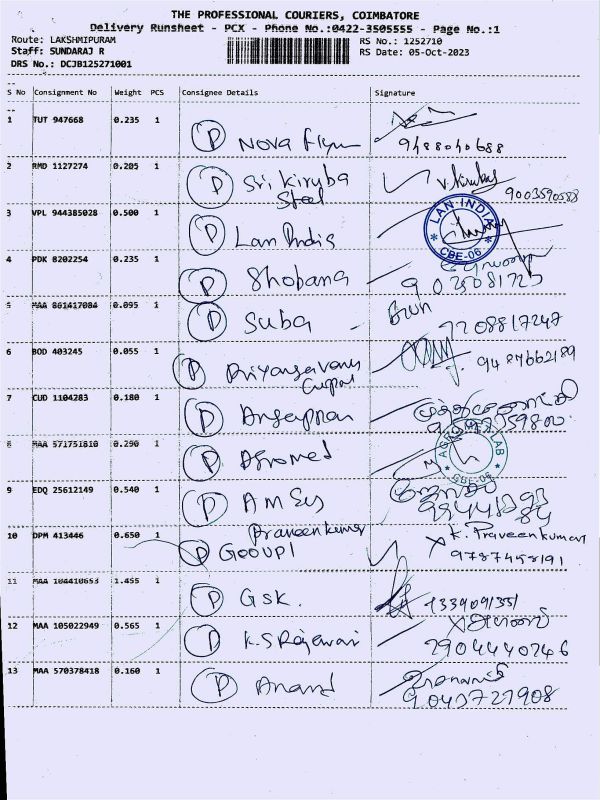 THE PROFESSIONAL COURIERS, COIMBATORE
Delivery Runsheet - PCX - Phone No.:0422-3505555 - Page No.:1
Route: LAKSHMIPURAM RS No.: 1252710
Staff: SUNDARAJ R RS Date: 05-Oct-2023
DRS No.: DCJB125271001
S No Consignment No Weight PCS Consignee Details Signature
1 TUT 947668 0.235 1
P Nova 9488040688
2 RMD 1127274 0.205 1
P Sri Kiruba V. Kiruba
Steel 9003590588
3 VPL 944385028 0.500 1
P Lan India LAN INDIA CBE-06
4 PDK 8202254 0.235 1
P Shobana
5 MAA 861417084 0.095 1
P Suba 7208817247
6 BOD 403245 0.055 1
P 9487662189
7 CUD 1104283 0.180 1
P
8 MAA 571751810 0.290 1
P Agromed LAB CBE-06
9 EDQ 25612149 0.540 1
P AM Sys
10 DPM 413446 0.650 1
Praveen kumar K. Praveen kumar
P GOOUPI 9787458191
11 MAA 104410653 1.455 1
P GSK.
12 MAA 105022949 0.565 1
P K.S Rajeswari 2904440246
13 MAA 570378418 0.160 1
P Anand 9043727908